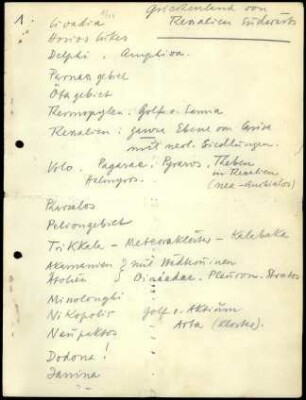 1
Griechenland von
Thessalien Südwärts
Livadia
Hosios Lukas
Delphi. Amphissa.
Parnassgebiet
Ötagebiet
Thermopylen. Golf v. Lamia
Thessalien: ganze Ebene von Larisa
mit neol. Siedlungen.
Volo. Pagasae. Theben
Halmyros. in Thessalien
(nea-Anchialos)
Pharsalos
Peliongebiet
Trikkala – Meteoraklöster – Kalabaka
Akarnanien } mit
Ätolien } Oiniadae. Pleuron. Stratos
Missolonghi
Nikopolis Golf v. Aktium
Naupaktos Arta (Kloster).
Dodona!
Janina